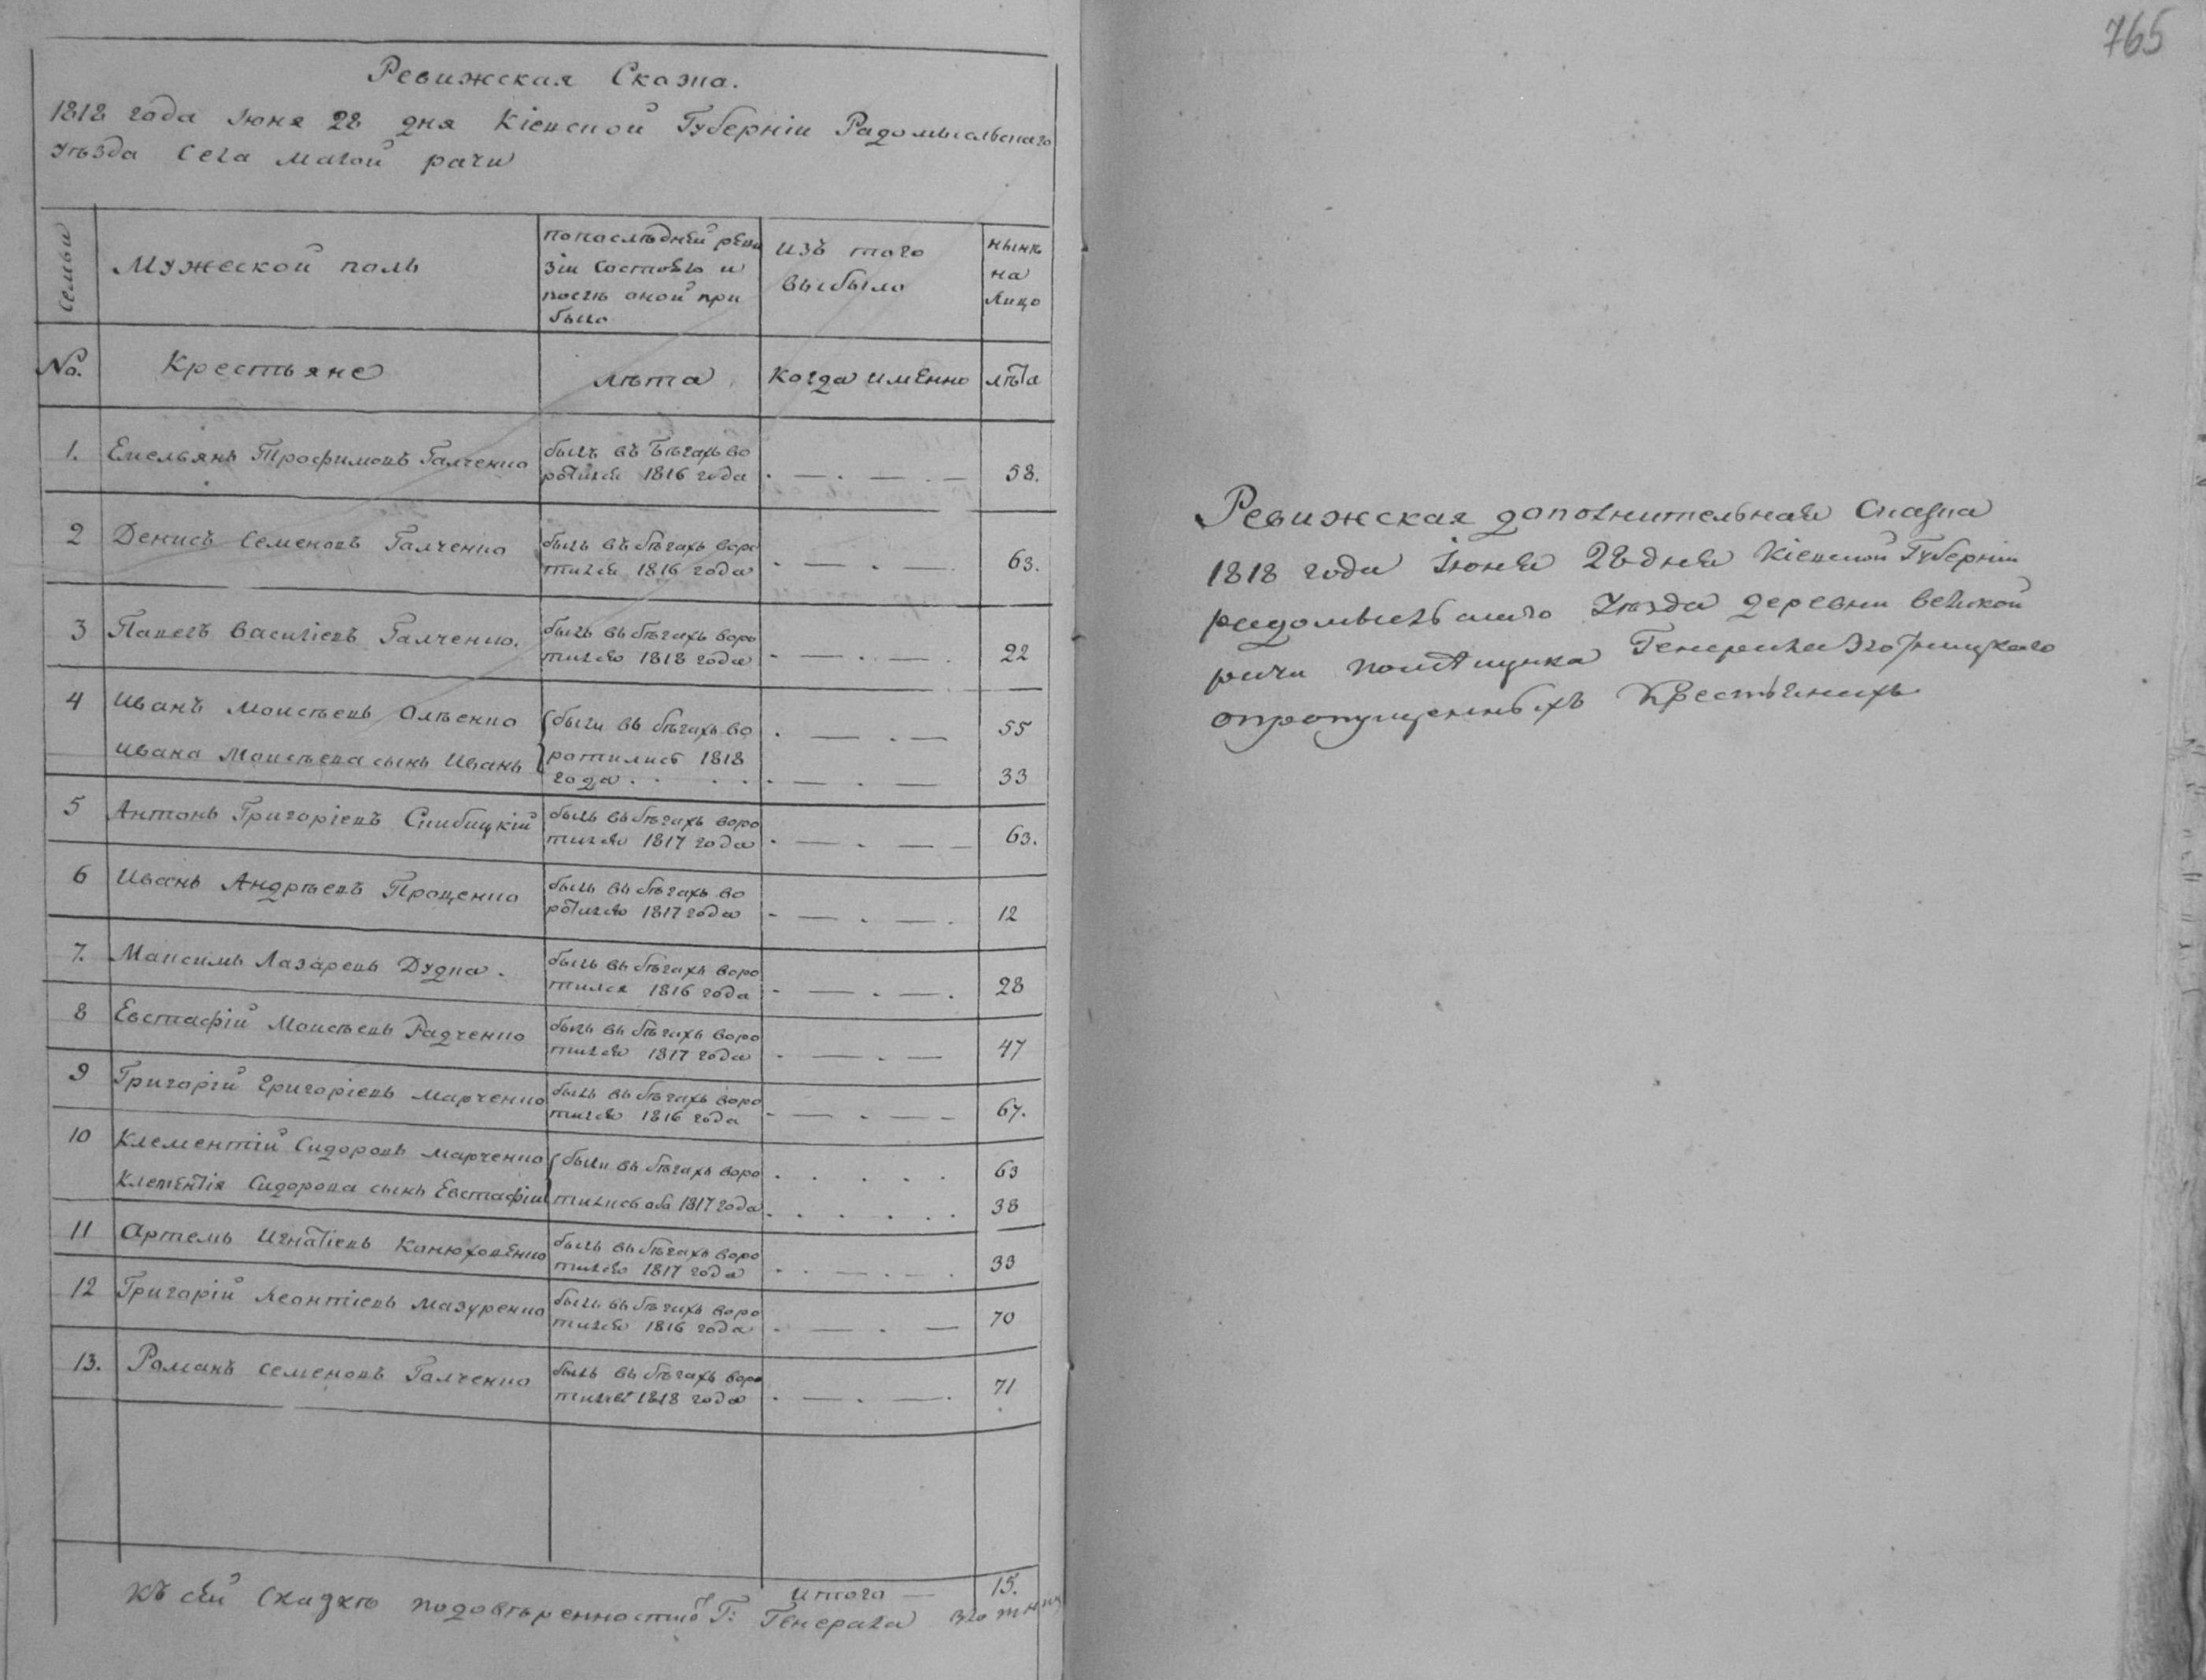 Ревижская Сказка.
1818 года Июня 28 дня Кіевской Губерніи Радомысльскаго
уѣзда Села малой рачи
Семьи
Мужеской полъ
попослѣдней реви
зіи состояло и
послѣ оной при
было
изъ того
выбыло
нынѣ
на
лицо
No.
Крестьяне
лѣта
когда имЕнно
лѣта
1. Емельянъ Трофимовъ Галченко
былъ въ Бѣгахъ во
ротился 1816 года
58.
2 Денисъ Семеновъ Галченко
былъ въ бѣгахъ воро
тился 1816 года
63.
3 Павелъ Василіевъ Галченко.
былъ въ бѣгахъ воро
тился 1818 года
22
4 Иванъ Моисѣевъ Олѣенко
были въ бѣгахъ во
55
Ивана Моисѣева сынъ Иванъ
ротились 1818
года
33
5 Антонъ Григоріевъ Скибицкій
былъ въ бѣгахъ воро
тился 1817 года
63.
6 Иванъ Андрѣевъ Проценко
былъ въ бѣгахъ во
ротился 1817 года
12
7. Максимъ Лазаревъ Дудка.
былъ въ бѣгахъ воро
тился 1816 года
28
8 Евстафій Моисѣевъ Радченко
былъ въ бѣгахъ воро
тился 1817 года
47
9 Григорій Григоріевъ Марченко
былъ въ бѣгахъ воро
тился 1816 года
67.
10 Клементій Сидоровъ Марченко
были въ бѣгахъ воро
63
Клементія Сидорова сынъ Евстафій
тились оба 1817 года
38
11 Артемъ Игнатіевъ Конюховенко
былъ въ бѣгахъ воро
тился 1817 года
33
12 Григорій Леонтіевъ Мазуренко
былъ въ бѣгахъ воро
тился 1816 года
70
13. Романъ Семеновъ Галченко
былъ въ бѣгахъ воро
тился 1818 года
71
Итого — 15.
Къ сей Скаскѣ подовѣренности Г: Генерала
765
Ревижская дополнительная Сказка
1818 года Іюня 28 дня Кіевской Губерніи
радомысльскаго Уѣзда деревни великой
рачи помѣщика Генерала
опропущенныхъ Крестянахъ